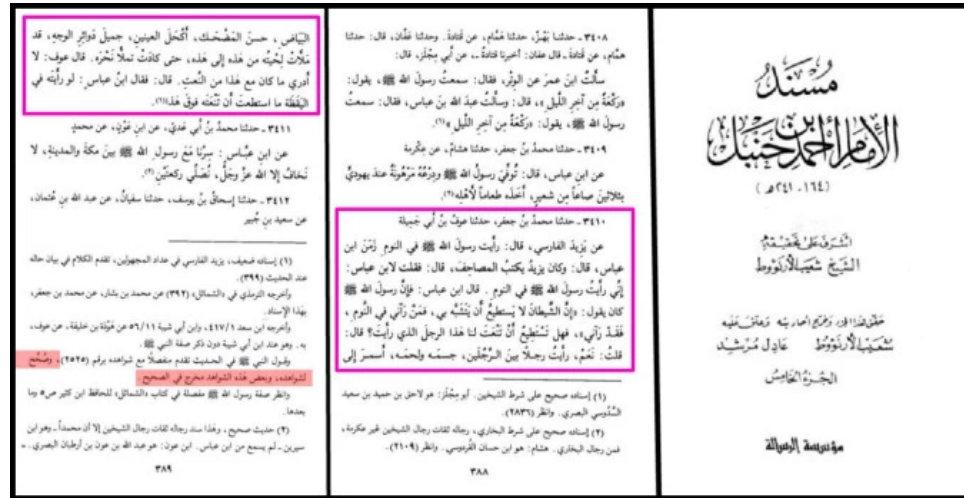 مُسْنَدُ
الإمام أحمد بن حنبل
(١٦٤ - ٢٤١ هـ)
أشرف على تحقيقه
الشيخ شعيب الأرنؤوط
حقق هذا الجزء وخرج أحاديثه وعلق عليه
شعيب الأرنؤوط عادل مرشد
الجزء الخامس
مؤسسة الرسالة
٣٤٠٨ - حدثنا بَهْزٌ، حدثنا هَمَّام، عن قَتادةَ. وحدثنا عَفَّان، قال: حدثنا
همَّام، عن قَتادةَ ـ قال عفان: أخبرنا قتادةُ ـ، عن أبي مِجْلَزٍ، قال:
سألْتُ ابنَ عمرَ عن الوِتْرِ، فقال: سمعتُ رسولَ الله ﷺ، يقول:
«رَكْعَةٌ مِن آخِرِ اللَّيلِ»، قال: وسألتُ عبدَ الله بنَ عباس، فقال: سمعتُ
رسولَ الله ﷺ، يقول: «رَكْعَةٌ مِن آخِرِ اللَّيلِ»(١).
٣٤٠٩ - حدثنا محمدُ بنُ جعفر، حدثنا هشامٌ، عن عِكْرمة
عن ابنِ عباس، قال: تُوفِّيَ رسولُ الله ﷺ ودِرْعُه مَرْهُونةٌ عند يهوديٍّ
بثلاثينَ صاعاً مِن شعيرٍ، أخذَه طعاماً لأهْلِه(٢).
٣٤١٠ - حدثنا محمدُ بنُ جعفر، حدثنا عوفُ بنُ أبي جَمِيلة
عن يَزِيدَ الفارسي، قال: رأيت رسولَ الله ﷺ في النومِ زَمَنَ ابنِ
عباس، قال: وكان يزيدُ يكتُبُ المصاحِفَ، قال: فقلت لابنِ عباس:
إنِّي رأيتُ رسولَ الله ﷺ في النومِ. قال ابن عباس: فإنَّ رسولَ الله ﷺ
كان يقول: «إنَّ الشَّيطانَ لا يَستطيعُ أن يَتَشَبَّه بي، فمَنْ رَآنِي في النَّومِ،
فَقَدْ رَآنِي»، فهل تَسْتَطِيعُ أنْ تَنْعَتَ لنا هذا الرجلَ الذي رأيتَ؟ قال:
قلتُ: نَعَمْ، رأيتُ رجلاً بَينَ الرَّجُلَينِ، جسمُه ولحمُه، أسمرَ إلى
(١) إسناده صحيح على شرط الشيخين. أبو مِجْلَز: هو لاحق بن حميد بن سعيد
السَّدُوسي البصري. وانظر (٢٨٣٦).
(٢) إسناده صحيح على شرط البخاري، رجاله ثقات رجال الشيخين غير عكرمة،
فمن رجال البخاري. هشام: هو ابن حسان القُردوسي. وانظر (٢١٠٩).
٣٨٨
البَيَاضِ، حسنَ المَضْحَكِ، أَكْحَلَ العينينِ، جميلَ دَوائِرِ الوجهِ، قد
مَلَأتْ لِحْيتُه مِن هٰذه إلى هٰذه، حتى كادَتْ تملأُ نَحْرَه. قال عوف: لا
أدري ما كان مع هٰذا من النَّعتِ. قال: فقال ابنُ عباس: لو رأيتَه في
اليَقَظَةِ ما استطعتَ أن تَنْعَتَه فوقَ هٰذا(١).
٣٤١١ - حدثنا محمدُ بنُ أبي عَديّ، عن ابنِ عَوْنٍ، عن محمدٍ
عن ابنِ عبَّاس: سِرْنا مَعَ رسولِ الله ﷺ بينَ مكةَ والمدينةِ، لا
نَخافُ إلا اللهَ عزَّ وجلَّ، نُصَلِّي ركعتَينِ(٢).
٣٤١٢ - حدثنا إسحاقُ بنُ يوسف، حدثنا سفيانُ، عن عبد الله بن عُثمان،
عن سعيد بن جُبير
(١) إسناده ضعيف، يزيد الفارسي في عداد المجهولين، تقدم الكلام في بيان حاله
عند الحديث (٣٩٩).
وأخرجه الترمذي في «الشمائل» (٣٩٢) عن محمد بن بشار، عن محمد بن جعفر،
بهٰذا الإسناد.
وأخرجه ابن سعد ٤١٧/١، وابن أبي شيبة ٥٦/١١ عن هَوْذَة بن خليفة، عن عوف،
به. وهو عند ابن أبي شيبة دون ذكر صفة النبي ﷺ.
وقول النبي ﷺ في الحديث تقدم مفصلاً مع شواهده برقم (٢٥٢٥)، وصُحِّح
لشواهده، وبعض هٰذه الشواهد مخرج في الصحيح
وانظر صفة رسول الله ﷺ مفصلة في كتاب «الشمائل» للحافظ ابن كثير ص٥ وما
بعدها.
(٢) حديث صحيح، وهٰذا سند رجاله ثقات رجال الشيخين إلا أن محمداً ـ وهو ابن
سيرين ـ لم يسمع من ابن عباس. ابن عون: هو عبد الله بن عون بن أرطبان البصري. =
٣٨٩